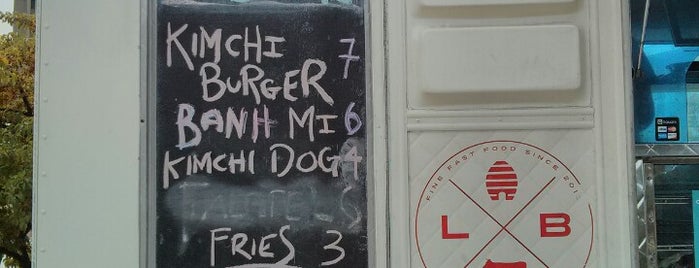 KIMCHI
BURGER 7
BANH MI 6
KIMCHI DOG 4
FRIES 3
FINE FAST FOOD SINCE
L B